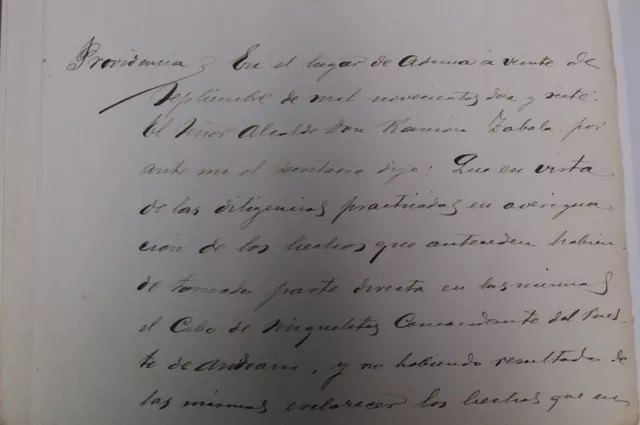 Providencia En el lugar de Asua a veinte de
Septiembre de mil novecientos diez y siete:
El Señor Alcalde Don Ramón Zabala por
ante mi el Secretario dijo: Que en vista
de las diligencias practicadas en averigua
ción de los hechos que anteceden habien
do tomado parte directa en las mismas
el Cabo de Miqueletes Comandante del Pues
to de Andoain, y no habiendo resultado de
las mismas esclarecer los hechos que en